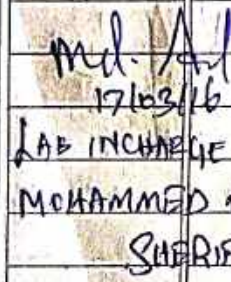 Md.
17/03/16
LAB INCHARGE
MOHAMMED
SHERIF